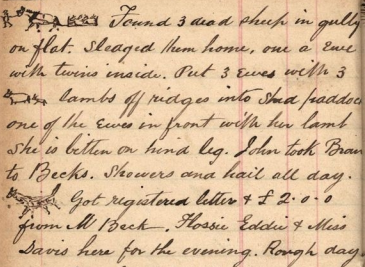 Found 3 dead sheep in gully
on flat. Sledged them home, one a Ewe
with twins inside. Put 3 Ewes with 3
lambs off ridges into Stud paddock
one of the Ewes in front with her lamb
She is bitten on hind leg. John took
to Becks. Showers and hail all day.
Got registered letter & £2.0.0
from M Beck. Flossie Eddie & Miss
Davis here for the evening. Rough day